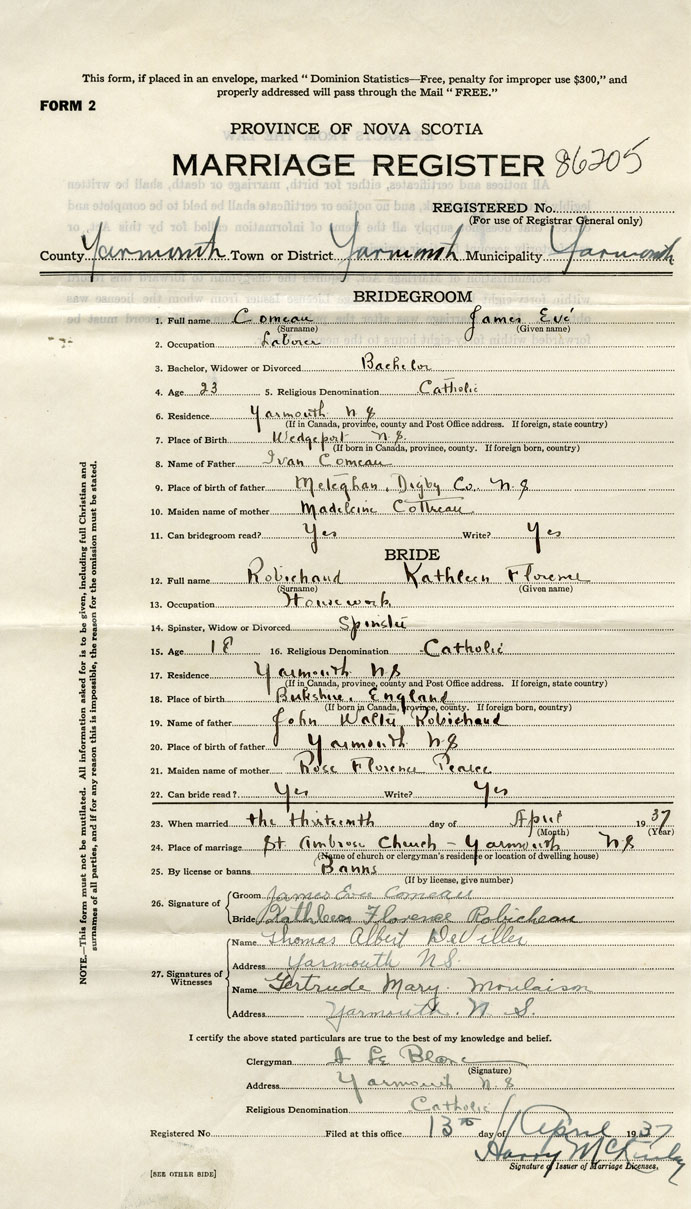 This form, if placed in an envelope, marked " Dominion Statistics—Free, penalty for improper use $300," and
properly addressed will pass through the Mail " FREE."
FORM 2
PROVINCE OF NOVA SCOTIA
MARRIAGE REGISTER 86205
REGISTERED No.
(For use of Registrar General only)
County Yarmouth Town or District Yarmouth Municipality Yarmouth
BRIDEGROOM
1. Full name Comeau James Evé
(Surname) (Given name)
2. Occupation Laborer
3. Bachelor, Widower or Divorced Bachelor
4. Age 23 5. Religious Denomination Catholic
6. Residence Yarmouth N S
(If in Canada, province, county and Post Office address. If foreign, state country)
7. Place of Birth Wedgeport N. S.
(If born in Canada, province, county. If foreign born, country)
8. Name of Father Ivan Comeau
9. Place of birth of father Meteghan, Digby Co. N. S
10. Maiden name of mother Madeleine Cottreau
11. Can bridegroom read? Yes Write? Yes
BRIDE
12. Full name Robichaud Kathleen Florence
(Surname) (Given name)
13. Occupation Housework
14. Spinster, Widow or Divorced Spinster
15. Age 18 16. Religious Denomination Catholic
17. Residence Yarmouth N S
(If in Canada, province, county and Post Office address. If foreign, state country)
18. Place of birth Berkshire, England
(If born in Canada, province, county. If foreign born, country)
19. Name of father John Walter Robichaud
20. Place of birth of father Yarmouth N S
21. Maiden name of mother Rose Florence Pearce
22. Can bride read? Yes Write? Yes
23. When married the thirteenth day of April 19 37
(Month) (Year)
24. Place of marriage St Ambrose Church - Yarmouth N S
(Name of church or clergyman's residence or location of dwelling house)
25. By license or banns Banns
(If by license, give number)
26. Signature of
Groom James Evee Comeau
Bride Kathleen Florence Robicheau
27. Signatures of Witnesses
Name Thomas Albert DeViller
Address Yarmouth N.S.
Name Gertrude Mary Moulaison
Address Yarmouth. N. S.
I certify the above stated particulars are true to the best of my knowledge and belief.
Clergyman Le Blanc
(Signature)
Address Yarmouth N. S
Religious Denomination Catholic
Registered No. Filed at this office 13th day of April 19 37
Harry McKinley
Signature of Issuer of Marriage Licenses.
[SEE OTHER SIDE]
NOTE.—This form must not be mutilated. All information asked for is to be given, including full Christian and
surnames of all parties, and if for any reason this is impossible, the reason for the omission must be stated.